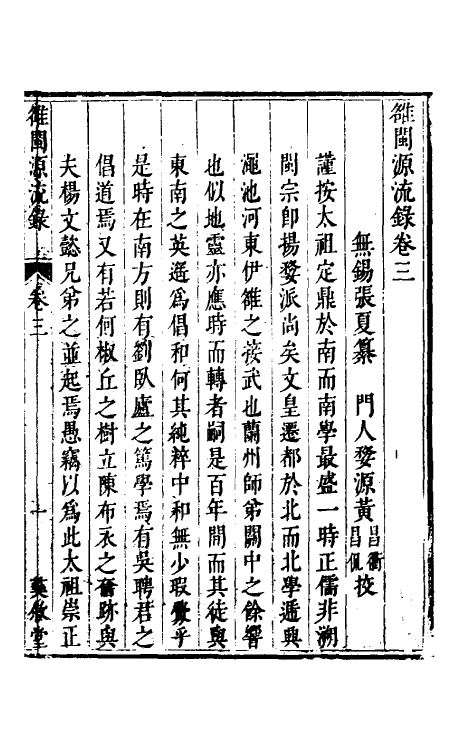 雒閩源流錄卷三
無錫張夏纂　門人婺源黃昌衢昌侃挍
謹按太祖定鼎於南而南學最盛一時正儒非溯
閩宗卽揚婺派尚矣文皇遷都於北而北學遁興
澠池河東伊雒之接武也蘭州師弟關中之餘響
也似地靈亦應時而轉者嗣是百年間而其徒與
東南之英遙爲倡和何其純粹中和無少瑕釁乎
是時在南方則有劉臥廬之篤學焉有吳聘君之
倡道焉又有若何椒丘之樹立陳布衣之奮跡與
夫楊文懿兄弟之並起焉愚竊以爲此太祖崇正
雒閩源流錄
卷三
一
彝敘堂